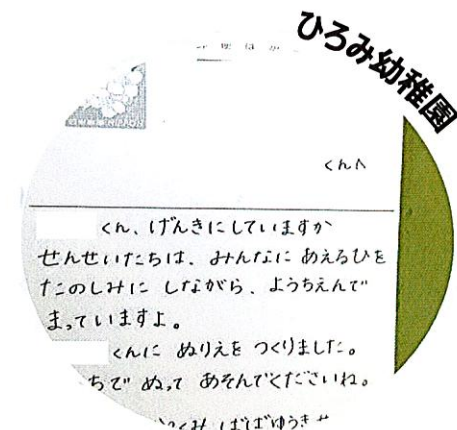 ひろみ幼稚園
郵便はが
くんへ
くん、げんきにしていますか
せんせいたちは、みんなに あえるひを
たのしみに しながら、ようちえんで
まっていますよ。
くんに ぬりえを つくりました。
ちで ぬって あそんでくださいね。
くみ ばばゆうき